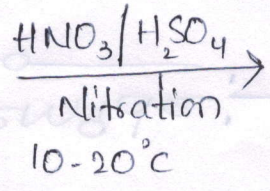 HNO₃/H₂SO₄
Nitration
10-20°C